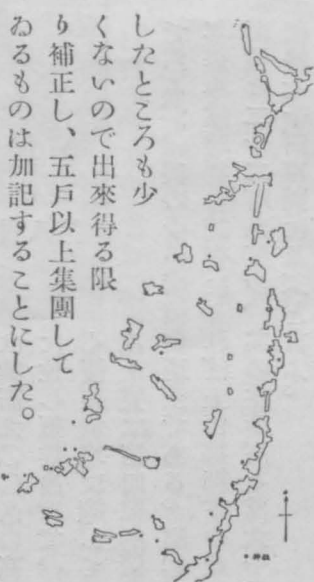 したところも少
くないので出來得る限
り補正し、五戸以上集團して
ゐるものは加記することにした。